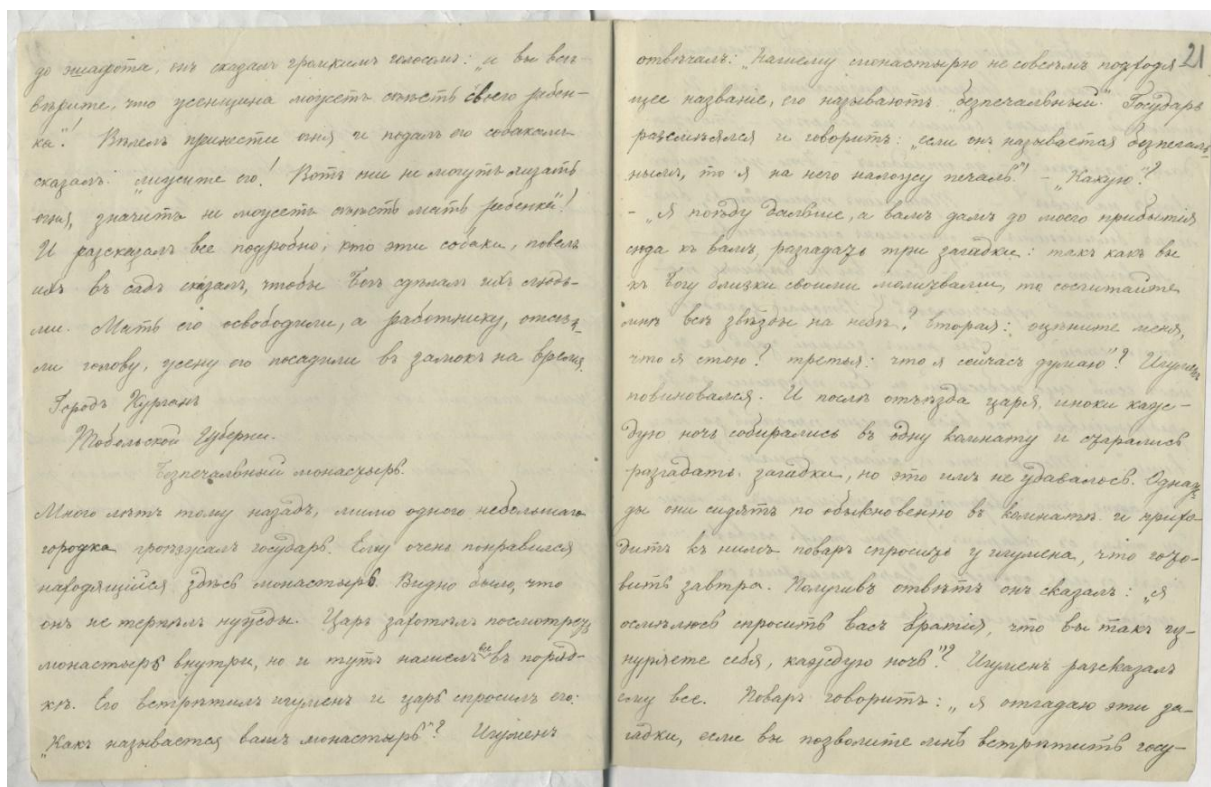 до эшафота, онъ сказалъ громкимъ голосомъ: „и вы все
вѣрите, что женщина можетъ съѣсть своего ребен-
ка“! Велелъ принести огня и подалъ его собакамъ
сказалъ: „лижите его! Вотъ они не могутъ лизать
огня, значитъ не можетъ съѣсть мать ребенка“!
И разсказалъ все подробно, кто эти собаки, повелъ
ихъ въ садъ сказалъ, чтобы Богъ сдѣлалъ ихъ людь-
ми. Мать его освободили, а работнику, отсѣк-
ли голову, жену его посадили въ замокъ на время.
Городъ Курганъ
Тобольской Губерни.
Безпечальный монастырь.
Много лѣтъ тому назадъ, мимо одного небольшаго
городка проѣзжалъ государь. Ему очень понравился
находящийся здѣсь монастырь. Видно было, что
онъ не терпѣлъ нужды. Царь захотѣлъ посмотрѣть
монастырь внутри, но и тутъ нашелъ все въ поряд-
кѣ. Его встрѣтилъ игуменъ и царь спросилъ его:
„Какъ называется вашъ монастырь“? Игуменъ
21
отвѣчалъ: „Нашему монастырю не совсѣмъ подходя
щее названіе, его называютъ „безпечальный“. Государь
разсмѣялся и говоритъ: „если онъ называется безпечаль-
нымъ, то я на него наложу печаль“! – „Какую“?
– „Я поѣду дальше, а вамъ дамъ до моего прибытія
сюда къ вамъ, разгадать три загадки: такъ какъ вы
къ Богу близки своими молитвами, то сосчитайте
мнѣ всѣ звѣзды на небѣ? вторая: оцѣните меня,
что я стою? третья: что я сейчасъ думаю“? Игуменъ
повиновался. И послѣ отъѣзда царя, иноки каж-
дую ночь собирались въ одну комнату и старались
разгадать загадки, но это имъ не удавалось. Однаж-
ды они сидятъ по обыкновенію въ комнатѣ и прихо-
дитъ къ нимъ поваръ спросить у игумена, что гото-
вить завтра. Получивъ отвѣтъ онъ сказалъ: „Я
осмѣлюсь спросить васъ братія, что вы такъ из-
нуряете себя, каждую ночь“? Игуменъ разсказалъ
ему все. Поваръ говоритъ: „я отгадаю эти за-
гадки, если вы позволите мнѣ встрѣтить госу-